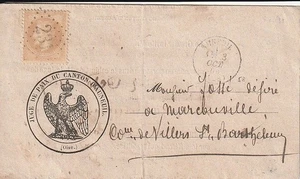 JUGE DE PAIX DU CANTON D'AUNEUIL
(Oise)
Monsieur Fossé désiré
a Marcouville
Con. de Villers St. Barthelemy